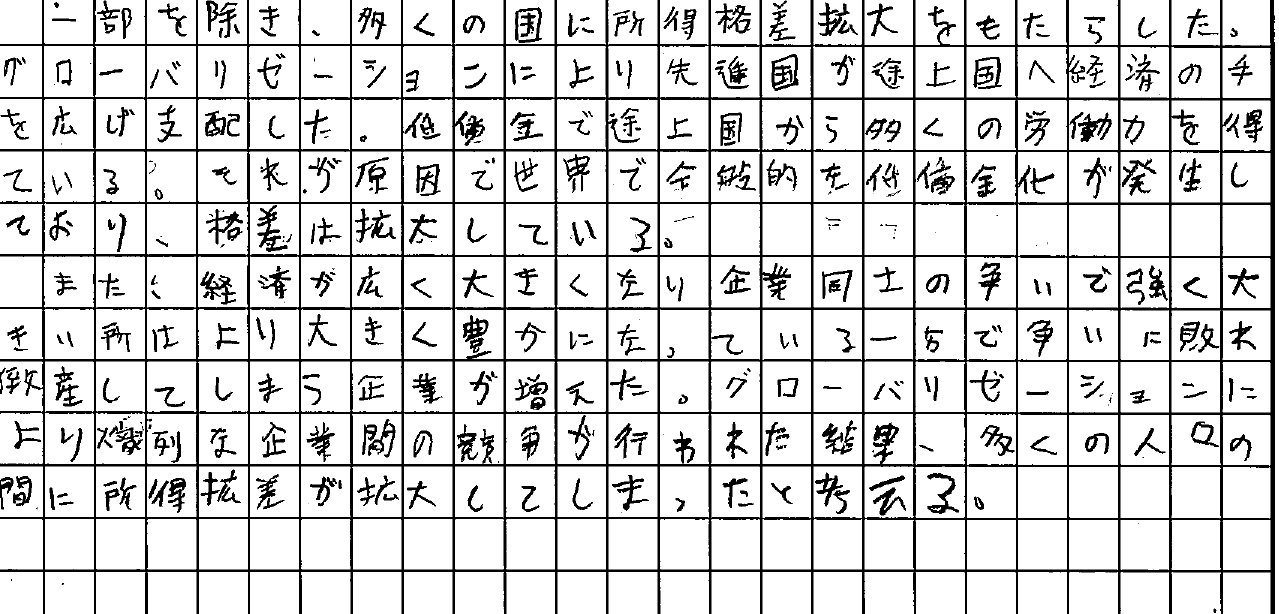 一部を除き、多くの国に所得格差拡大をもたらした。
グローバリゼーションにより先進国が途上国へ経済の手
を広げ支配した。低賃金で途上国から多くの労働力を得
ている。それが原因で世界で全般的な低賃金化が発生し
ており、格差は拡大している。
また、経済が広く大きくなり企業同士の争いで強く大
きい所はより大きく豊かになっている一方で争いに敗れ
倒産してしまう企業が増えた。グローバリゼーションに
より熾烈な企業間の競争が行われた結果、多くの人口の
間に所得拡差が拡大してしまったと考える。